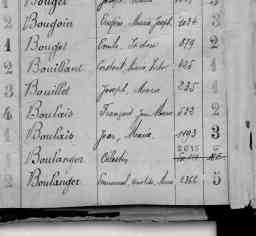 Bouget Joseph, Marie
2 Bougoin Eugène Marie Joseph 1034 3
1 Bougot Emile, Isidore 879 2
2 Bouillant Constant Marie Victor 425 4
3 Bouillet Joseph, Marie 235 4
4 Boulais François Jean Marie 522 2
4 Boulais Jean, Marie 1193 3
1 Boulanger Célestin 2635 6
2 Boulanger Emmanuel Aristide, Marie 2366 5